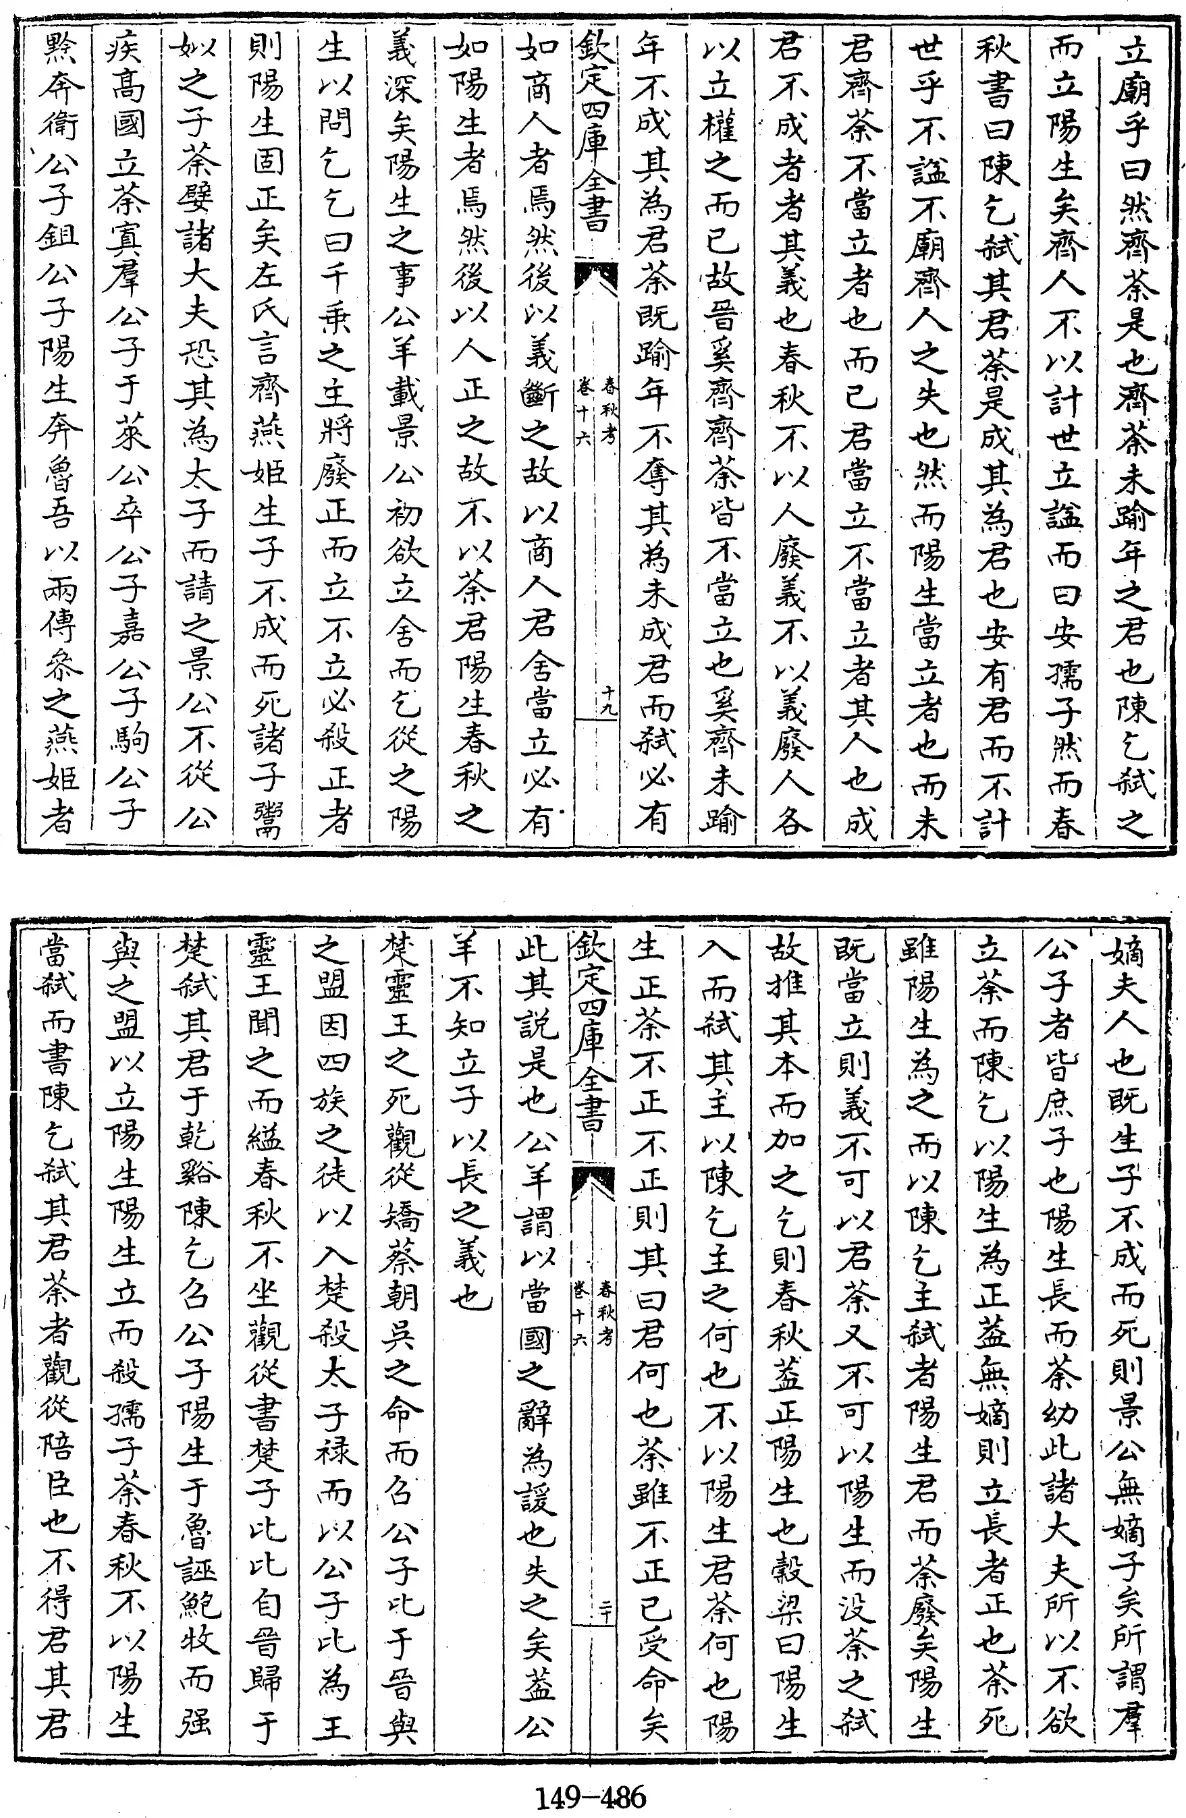 立廟乎曰然齊荼是也齊荼未踰年之君也陳乞弑之
而立陽生矣齊人不以計世立諡而曰安孺子然而春
秋書曰陳乞弑其君荼是成其為君也安有君而不計
世乎不諡不廟齊人之失也然而陽生當立者也而未
君齊荼不當立者也而已君當立不當立者其人也成
君不成者者其義也春秋不以人廢義不以義廢人各
以立權之而已故晉奚齊齊荼皆不當立也奚齊未踰
年不成其為君荼既踰年不奪其為未成君而弑必有
欽定四庫全書
春秋考
卷十六
十九
如商人者焉然後以義斷之故以商人君舍當立必有
如陽生者焉然後以人正之故不以荼君陽生春秋之
義深矣陽生之事公羊載景公初欲立舍而乞從之陽
生以問乞乞曰千乗之主將廢正而立不立必殺正者
則陽生固正矣左氏言齊燕姬生子不成而死諸子鬻
姒之子荼嬖諸大夫恐其為太子而請之景公不從公
疾髙國立荼寘羣公子于萊公卒公子嘉公子駒公子
黔奔衛公子鉏公子陽生奔魯吾以兩傳叅之燕姬者
嫡夫人也既生子不成而死則景公無嫡子矣所謂羣
公子者皆庶子也陽生長而荼幼此諸大夫所以不欲
立荼而陳乞以陽生為正葢無嫡則立長者正也荼死
雖陽生為之而以陳乞主弑者陽生君而荼廢矣陽生
既當立則義不可以君荼又不可以陽生而没荼之弑
故推其本而加之乞則春秋葢正陽生也榖梁曰陽生
入而弑其主以陳乞主之何也不以陽生君荼何也陽
生正荼不正不正則其曰君何也荼雖不正已受命矣
欽定四庫全書
春秋考
卷十六
二十
此其説是也公羊謂以當國之辭為諼也失之矣葢公
羊不知立子以長之義也
楚靈王之死觀從矯蔡朝吳之命而召公子比于晉與
之盟因四族之徒以入楚殺太子禄而以公子比為王
靈王聞之而縊春秋不坐觀從書楚子比比自晉歸于
楚弑其君于乾谿陳乞召公子陽生于魯誣鮑牧而强
與之盟以立陽生陽生立而殺孺子荼春秋不以陽生
當弑而書陳乞弑其君荼者觀從陪臣也不得君其君
149-486